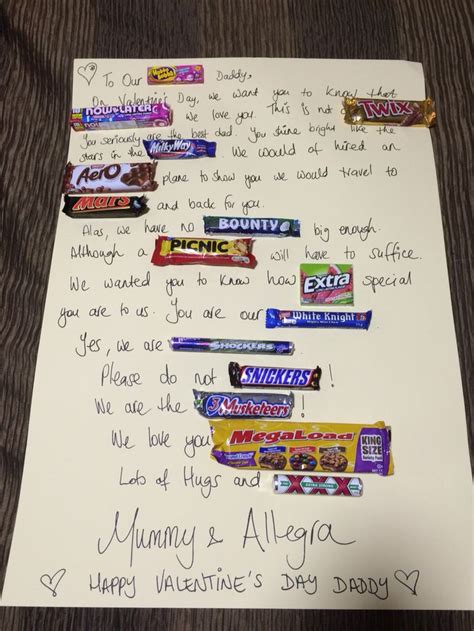 To Our Hubba Bubba Daddy,
On Valentine's Day, we want you to know that
Now&Later we love you. This is not TWIX
You seriously are the best dad. You shine bright like the
stars in the MilkyWay We would of hired an
Aero plane to show you we would travel to
Mars and back for you.
Alas, we have no BOUNTY big enough.
Although a PICNIC will have to suffice.
We wanted you to know how Extra special
you are to us. You are our White Knight
Yes, we are SHOCKERS
Please do not SNICKERS!
We are the 3 Musketeers!
We love you MEGALOAD KING SIZE
Lots of Hugs and XXX EXTRA STRONG
Mummy & Allegra
HAPPY VALENTINE'S DAY DADDY